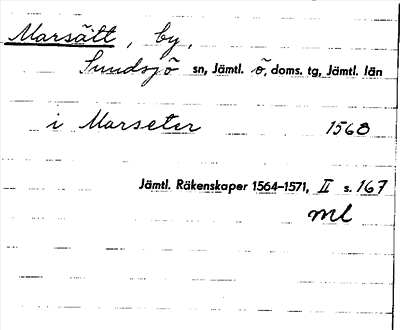 Marsätt, by,
Sundsjö sn, Jämtl. ö, doms. tg, Jämtl. län
i Marseter 1568
Jämtl. Räkenskaper 1564–1571, II s. 167
ml